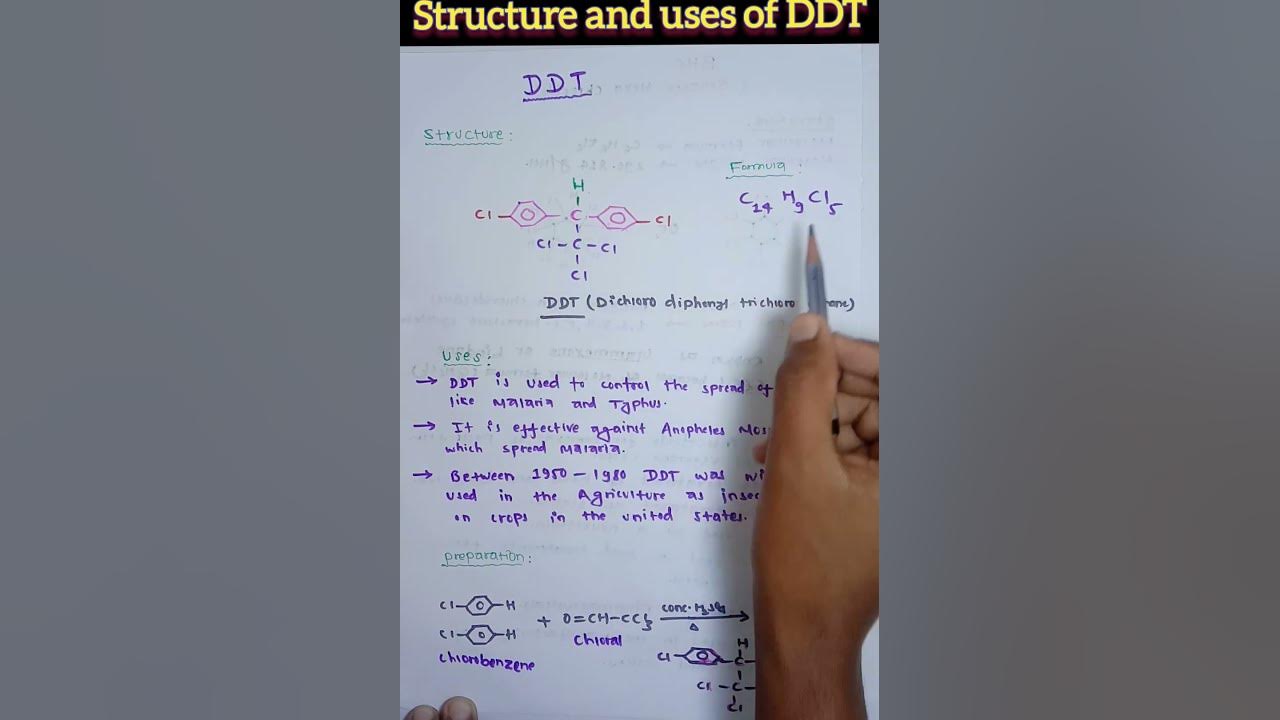 Structure and uses of DDT
DDT
Structure:
Formula:
C14 H9 Cl5
H
Cl C Cl
Cl - C - Cl
Cl
DDT (Dichloro diphenyl trichloro
uses:
→ DDT is used to control the spread of
like Malaria and Typhus.
→ It is effective against Anopheles Mos
which spread Malaria.
→ Between 1950 - 1980 DDT was wi
used in the Agriculture as insec
on crops in the united states.
preparation:
Cl H
Cl H
chlorobenzene
+ O=CH-CCl3
chloral
conc. H2SO4
Δ
H
Cl C
Cl - C
Cl